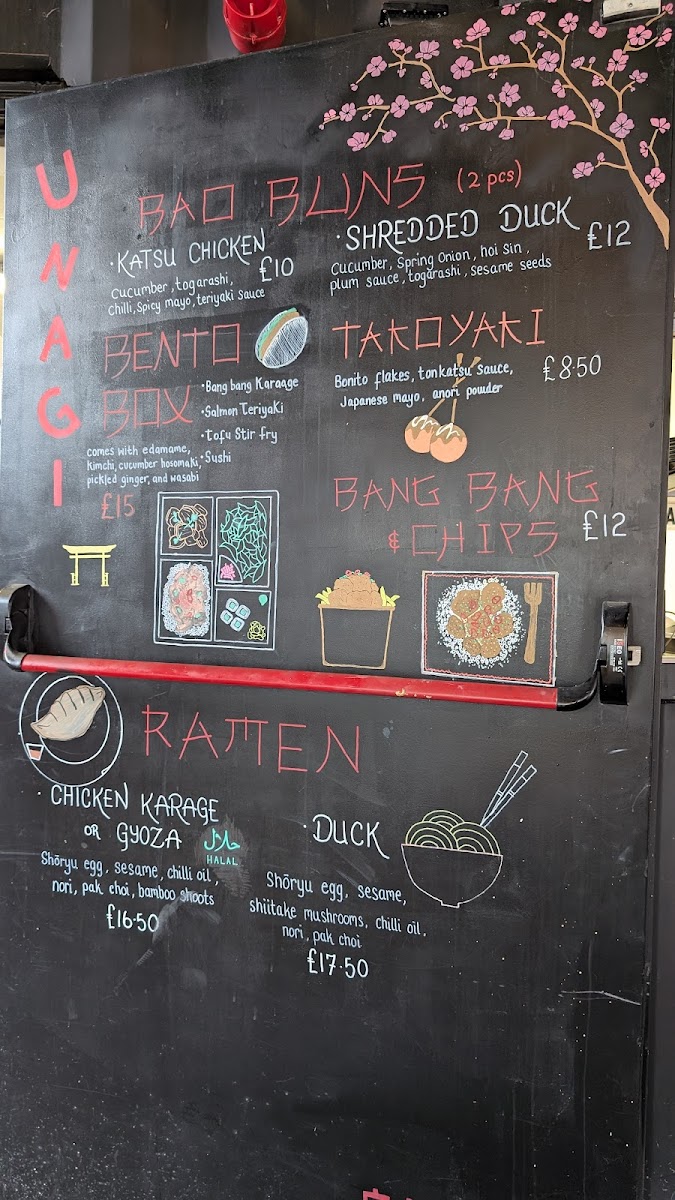 UNAGI
BAO BUNS (2 pcs)
· KATSU CHICKEN
£10
Cucumber, togarashi,
Chilli, Spicy mayo, teriyaki Sauce
· SHREDDED DUCK
£12
Cucumber, Spring Onion, hoi sin,
plum sauce, togarashi, sesame seeds
BENTO
BOX
· Bang bang Karaage
· Salmon Teriyaki
· Tofu Stir fry
· Sushi
comes with edamame,
kimchi, cucumber hosomaki,
pickled ginger, and wasabi
£15
TAKOYAKI
£8·50
Bonito flakes, tonkatsu sauce,
Japanese mayo, anori powder
BANG BANG
& CHIPS
£12
RAMEN
· CHICKEN KARAGE
OR GYOZA
حلال
HALAL
Shōryu egg, sesame, chilli oil,
nori, pak choi, bamboo shoots
£16·50
· DUCK
Shōryu egg, sesame,
shiitake mushrooms, chilli oil,
nori, pak choi
£17·50